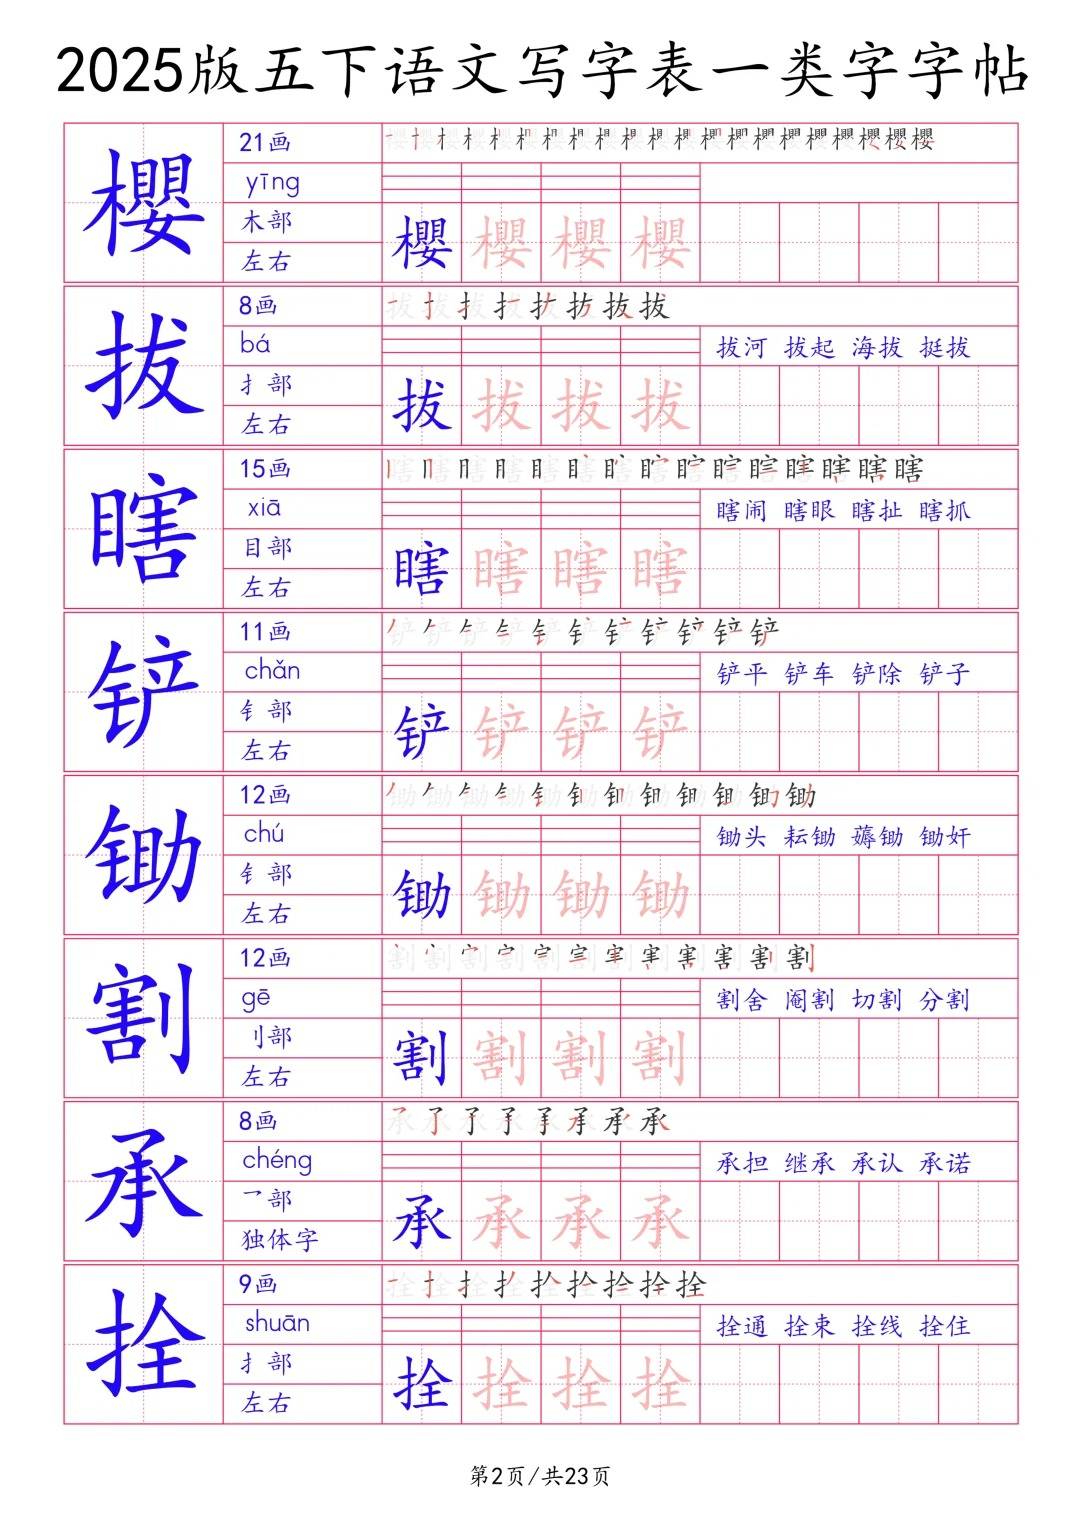 2025版五下语文写字表一类字字帖
櫻
21画
yīng
木部
左右
櫻 櫻 櫻 櫻
拔
8画
bá
拔河 拔起 海拔 挺拔
扌部
左右
拔 拔 拔 拔
瞎
15画
xiā
瞎闹 瞎眼 瞎扯 瞎抓
目部
左右
瞎 瞎 瞎 瞎
铲
11画
chǎn
铲平 铲车 铲除 铲子
钅部
左右
铲 铲 铲 铲
锄
12画
chú
锄头 耘锄 薅锄 锄奸
钅部
左右
锄 锄 锄 锄
割
12画
gē
割舍 阉割 切割 分割
刂部
左右
割 割 割 割
承
8画
chéng
承担 继承 承认 承诺
乛部
独体字
承 承 承 承
拴
9画
shuān
拴通 拴束 拴线 拴住
扌部
左右
拴 拴 拴 拴
第2页/共23页